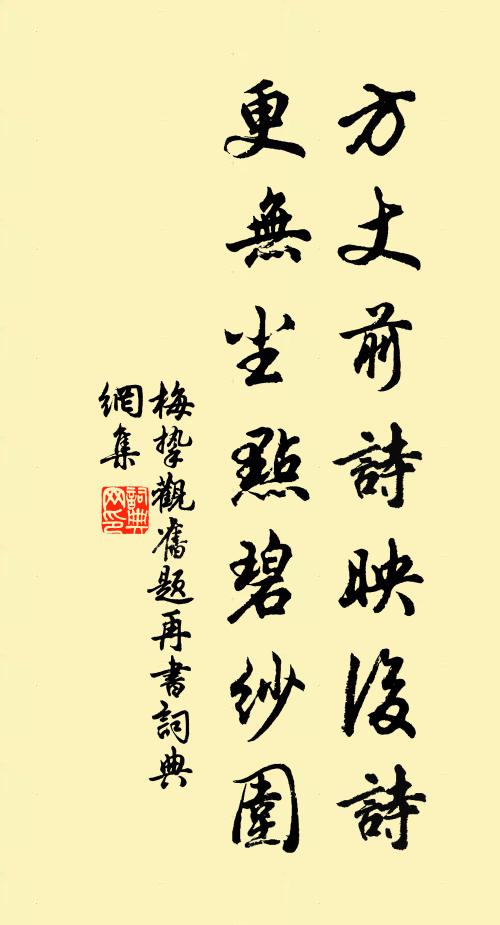 方丈前詩映後詩
更無尘點碧紗圍
梅挚觀舊題再書詞典
網集
詞典
网印